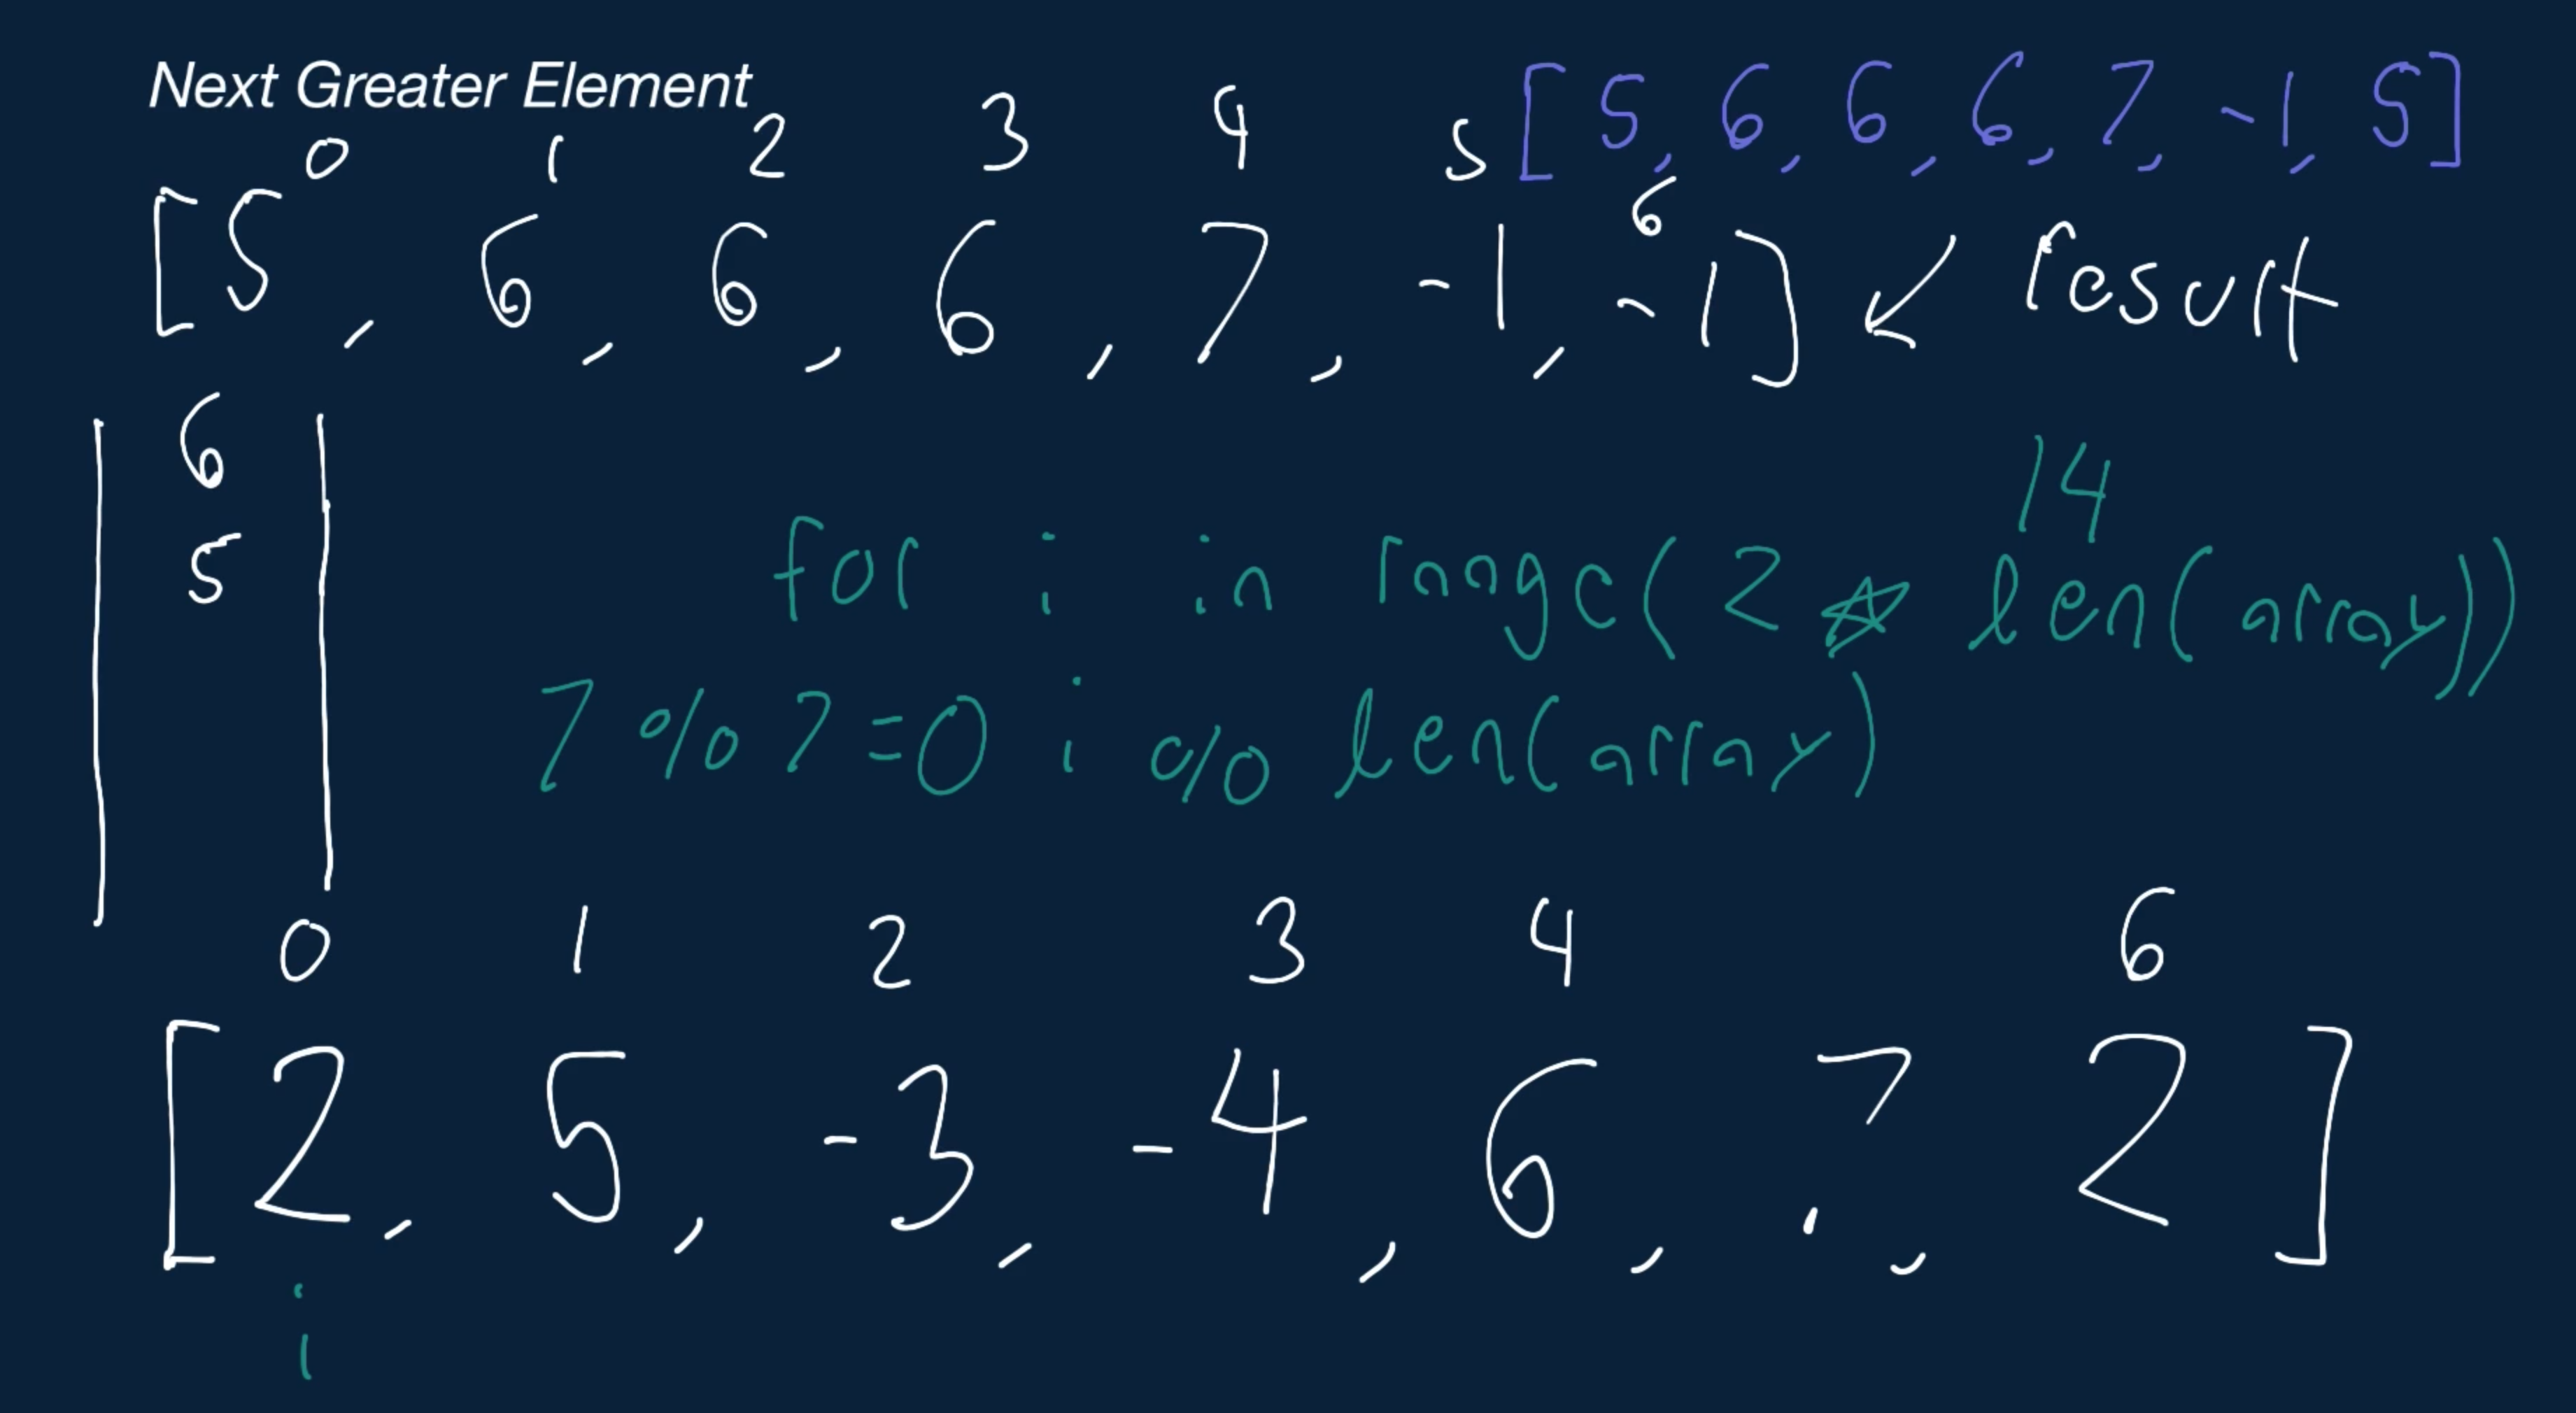 Next Greater Element
[5, 6, 6, 6, 7, -1, 5]
0 1 2 3 4 5 6
[5, 6, 6, 6, 7, -1, -1] ↙ result
6
5
14
for i in range(2 * len(array))
7 % 7 = 0 i % len(array)
0 1 2 3 4 6
[2, 5, -3, -4, 6, 7, 2]
i